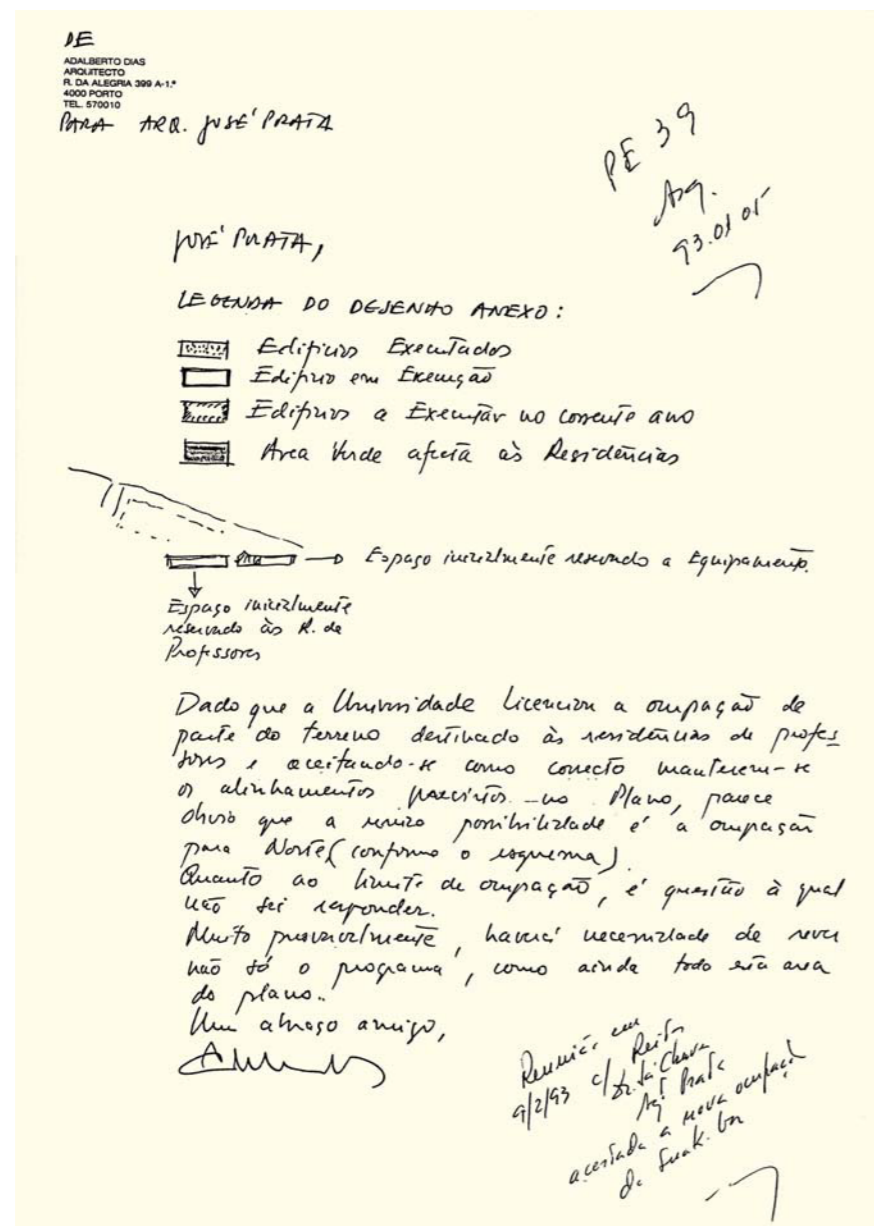 DE
ADALBERTO DIAS
ARQUITECTO
R. DA ALEGRIA 399 A-1.º
4000 PORTO
TEL. 570010
PARA ARQ. JOSÉ PRATA
PE 39
Arq.
93.01.05
JOSÉ PRATA,
LEGENDA DO DESENHO ANEXO:
Edifícios Executados
Edifício em Execução
Edifícios a Executar no corrente ano
Area Verde afecta às Residências
Espaço inicialmente reservado a Equipamento.
Espaço inicialmente
reservado às R. de
Professores
Dado que a Universidade licenciou a ocupação de
parte do terreno destinado às residências de profes
sores e aceitando-se como correcto manterem-se
os alinhamentos previstos no Plano, parece
óbvio que a unica possibilidade é a ocupação
para Norte (conforme o esquema).
Quanto ao limite de ocupação, é questão à qual
não sei responder.
Muito provavelmente, haverá necessidade de rever
não só o programa, como ainda toda esta area
do plano.
Um abraço amigo,
Reunião em
9/2/93 c/ Reitor
Arq Prata
acertada a nova ocupação
da